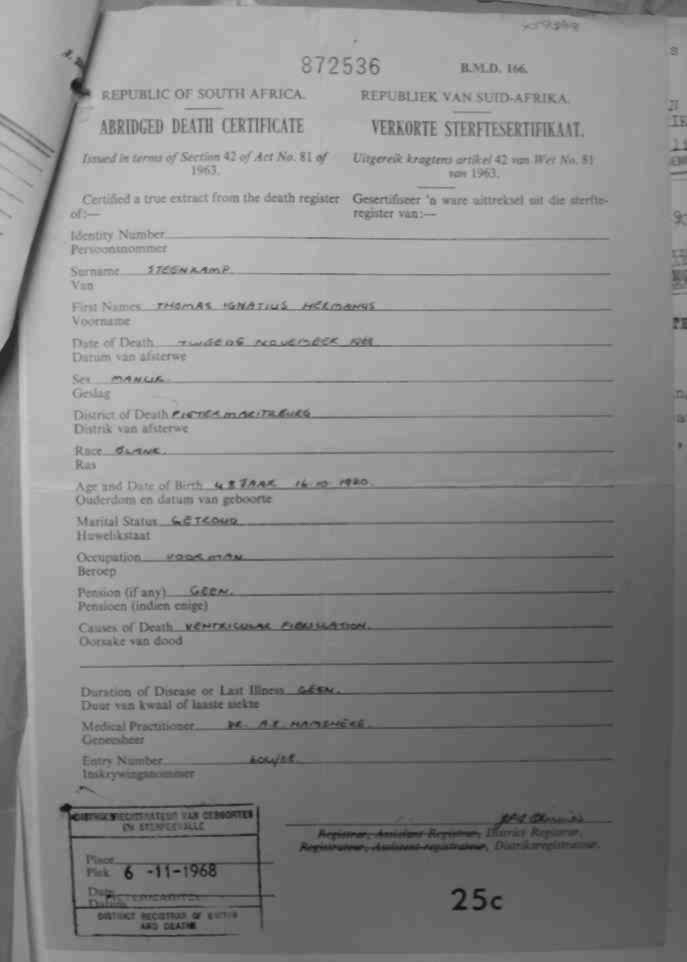 872536
B.M.D. 166.
REPUBLIC OF SOUTH AFRICA.
REPUBLIEK VAN SUID-AFRIKA.
ABRIDGED DEATH CERTIFICATE
VERKORTE STERFTESERTIFIKAAT.
Issued in terms of Section 42 of Act No. 81 of
1963.
Uitgereik kragtens artikel 42 van Wet No. 81
van 1963.
Certified a true extract from the death register
of:—
Gesertifiseer 'n ware uittreksel uit die sterfte-
register van:—
Identity Number
Persoonsnommer
Surname STEENKAMP.
Van
First Names THOMAS IGNATIUS HERMANUS
Voorname
Date of Death TWEEDE NOVEMBER 1968
Datum van afsterwe
Sex MANLIK.
Geslag
District of Death PIETERMARITZBURG
Distrik van afsterwe
Race BLANK.
Ras
Age and Date of Birth 48 JAAR 16-10-1920.
Ouderdom en datum van geboorte
Marital Status GETROUD
Huwelikstaat
Occupation VOORMAN
Beroep
Pension (if any) GEEN.
Pensioen (indien enige)
Causes of Death VENTRICULAR FIBRILLATION.
Oorsake van dood
Duration of Disease or Last Illness GEEN.
Duur van kwaal of laaste siekte
Medical Practitioner DR. A.E.
Geneesheer
Entry Number
Inskrywingsnommer
DISTRIKSREGISTRATEUR VAN GEBOORTES
EN STERFGEVALLE
Place
Plek 6 -11-1968
Date
Datum
DISTRICT REGISTRAR OF BIRTHS
AND DEATHS
Registrar, Assistant Registrar, District Registrar.
Registrateur, Assistent-registrateur, Distriksregistrateur.
25c